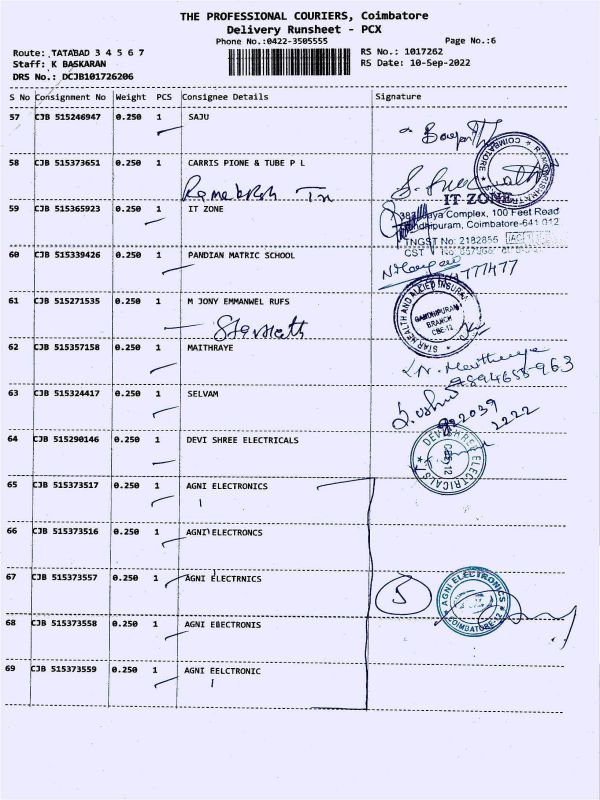 THE PROFESSIONAL COURIERS, Coimbatore
Delivery Runsheet - PCX
Phone No.:0422-3505555
Page No.:6
Route: TATABAD 3 4 5 6 7
RS No.: 1017262
Staff: K BASKARAN
RS Date: 10-Sep-2022
DRS No.: DCJB101726206
S No Consignment No Weight PCS Consignee Details Signature
57 CJB 515246947 0.250 1 SAJU
COIMBATORE
58 CJB 515373651 0.250 1 CARRIS PIONE & TUBE P L
59 CJB 515365923 0.250 1 IT ZONE
IT ZONE
Complex, 100 Feet Road
Coimbatore-641 012
TNGST No: 2182856
CST No
60 CJB 515339426 0.250 1 PANDIAN MATRIC SCHOOL
777477
61 CJB 515271535 0.250 1 M JONY EMMANWEL RUFS
STAR HEALTH AND ALLIED INSURAN
GANDHIPURAM
BRANCH
CBE-12
62 CJB 515357158 0.250 1 MAITHRAYE
9894655963
63 CJB 515324417 0.250 1 SELVAM
2222
64 CJB 515290146 0.250 1 DEVI SHREE ELECTRICALS
DEVI SHREE ELECTRICALS
65 CJB 515373517 0.250 1 AGNI ELECTRONICS
66 CJB 515373516 0.250 1 AGNI ELECTRONCS
67 CJB 515373557 0.250 1 AGNI ELECTRNICS
5
AGNI ELECTRONICS
COIMBATORE-12
68 CJB 515373558 0.250 1 AGNI EBECTRONIS
69 CJB 515373559 0.250 1 AGNI EELCTRONIC